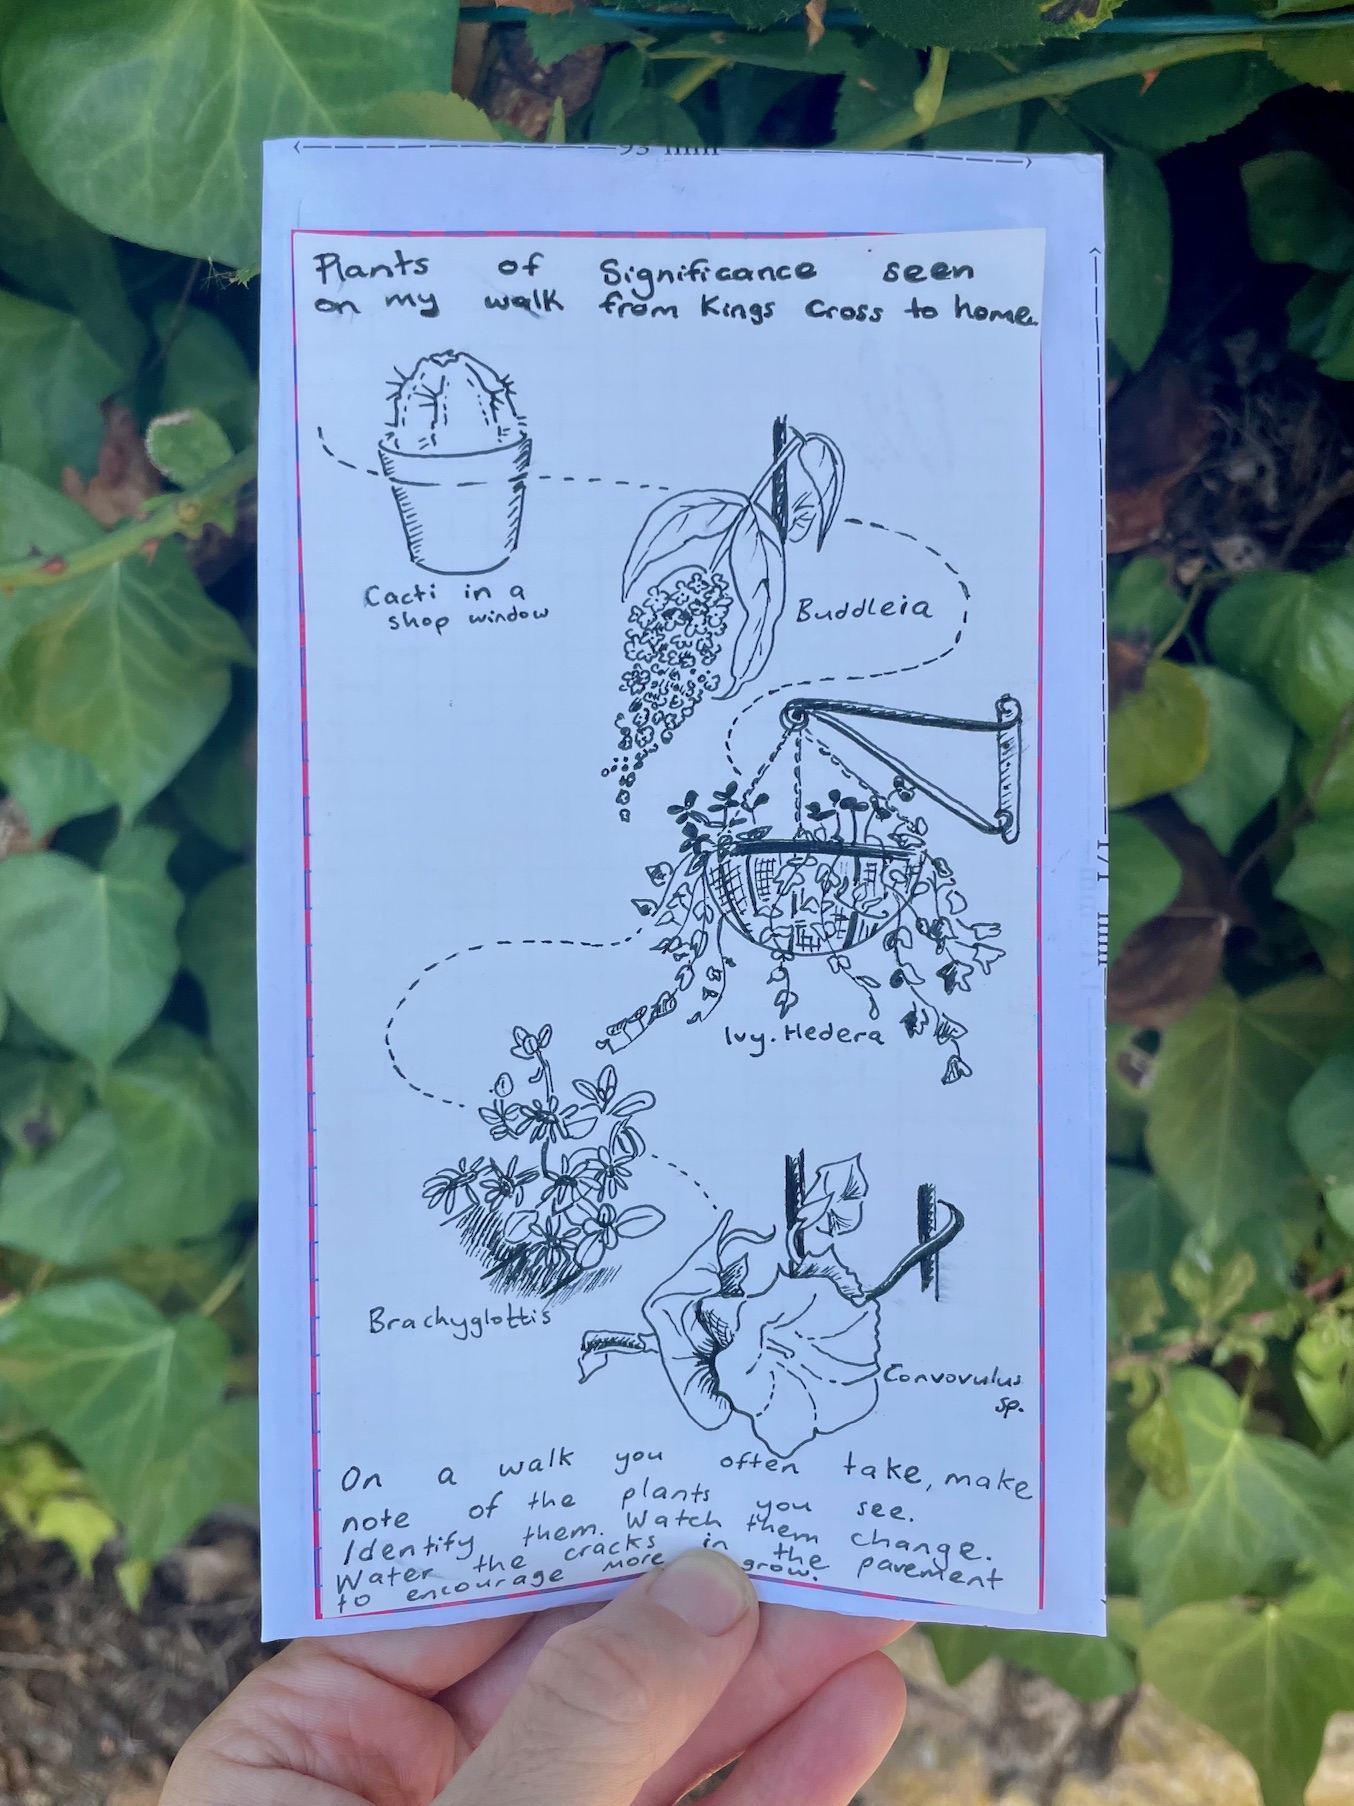 Plants of Significance seen
on my walk from Kings Cross to home.
Cacti in a
shop window
Buddleia
Ivy. Hedera
Brachyglottis
Convovulus
sp.
On a walk you often take, make
note of the plants you see.
Identify them. Watch them change.
Water the cracks in the pavement
to encourage more grow.